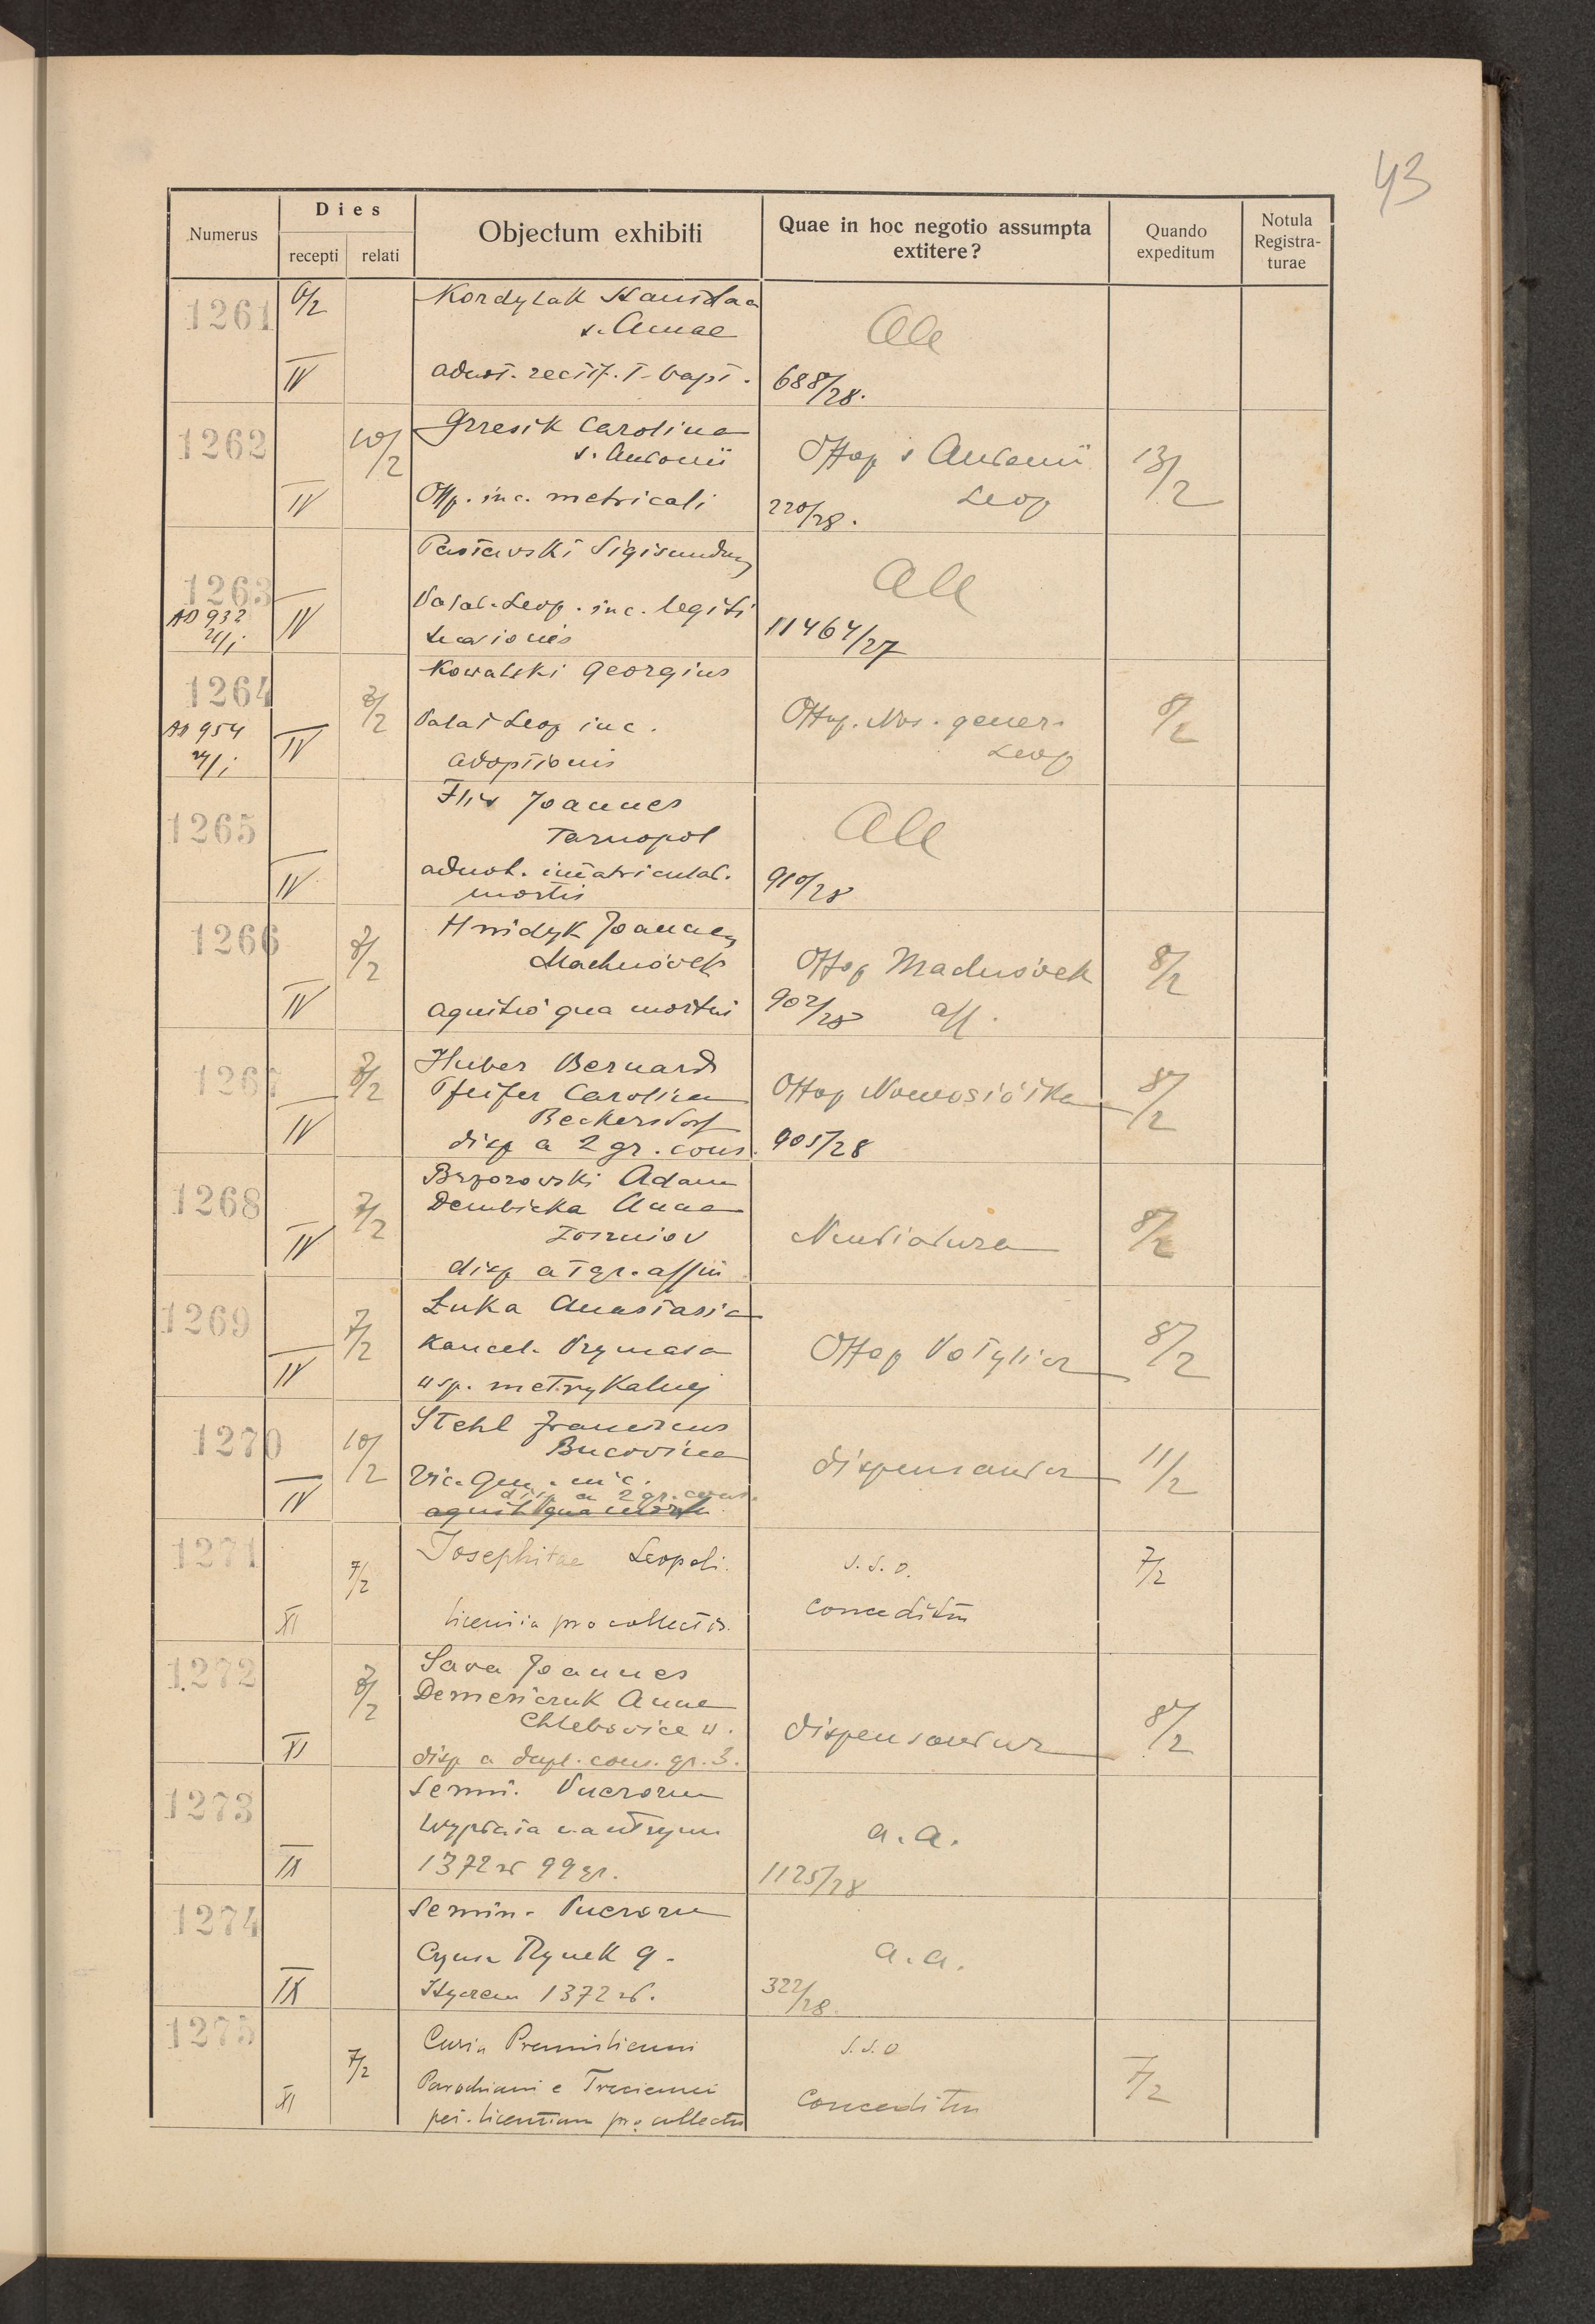 43
Numerus
Dies
recepti relati
Objectum exhibiti
Quae in hoc negotio assumpta extitere?
Quando expeditum
Notula Registra-turae
1261 6/2
Kordylak Stanislaa
s. Annae
All
IV
adnot. rectif. T. bapt. 688/28.
1262 10/2
Grzesik Carolina
s. Antonii
Offop s Antonii 13/2
Leop
IV
Off. inc. metricali 220/28.
1263
Pastawski Sigismundus
All
AD 932
IV
Palat. Leop. inc. legiti
11464/27
1264
Kowalski Georgius
8/2
AD 954
IV
Palat Leop inc.
Offop. gener. 8/2
Leop
adoptionis
1265
Joannes
Tarnopol
All
IV
adnot. immatriculat.
mortis
910/28
1266 8/2
Hnidyk Joannes
Machnówek
Offop Machnówek 8/2
IV
agnitio qua mortui 902/28
all.
1267 8/2
Huber Bernard
Pfeifer Carolina
Beckersdorf
Offop Nowosiółka 8/2
IV
disp a 2 gr. cons. 905/28
1268 7/2
Brzozowski Adam
Dembicka Anna
Nuntiatura 8/2
IV
disp a I gr. affin
1269 7/2
Łuka Anastasia
Kancel. Prymasa
Offop 8/2
IV
wsp. metrykalnej
1270 10/2
Stehl Franciscus
Bucovina
dispensantur 11/2
IV
Vic. Gen. inc.
disp a 2 gr. cons.
agnit qua mort
1271 7/2
Josephitae Leopoli.
S. S. O. 7/2
XI
licentia pro collectis.
conceditur
1272 8/2
Sawa Joannes
Demeńczuk Anna
Chlebowice w.
dispensantur 8/2
XI
disp a dupl. cons. gr. 3.
1273
Semin. Puerorum
a. a.
IX
1372 zł 99 gr. 1125/28
1274
Semin. Puerorum
Czynsz Rynek 9.
a. a.
IX
Styczeń 1372 zł. 322/28.
1275 7/2
Curia Premisliensi
S. S. O 7/2
XI
Parochiani e
pet. licentiam pro collecta
conceditur